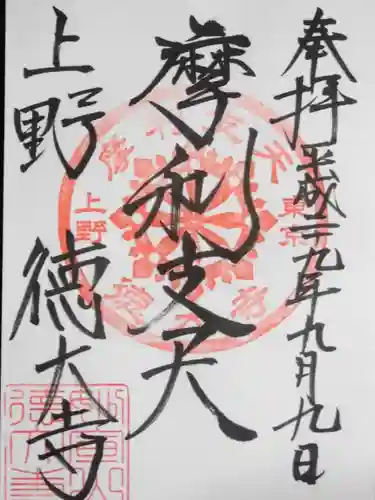 奉拝
平成二十九年九月九日
摩利支天
上野 徳大寺
東京
上野